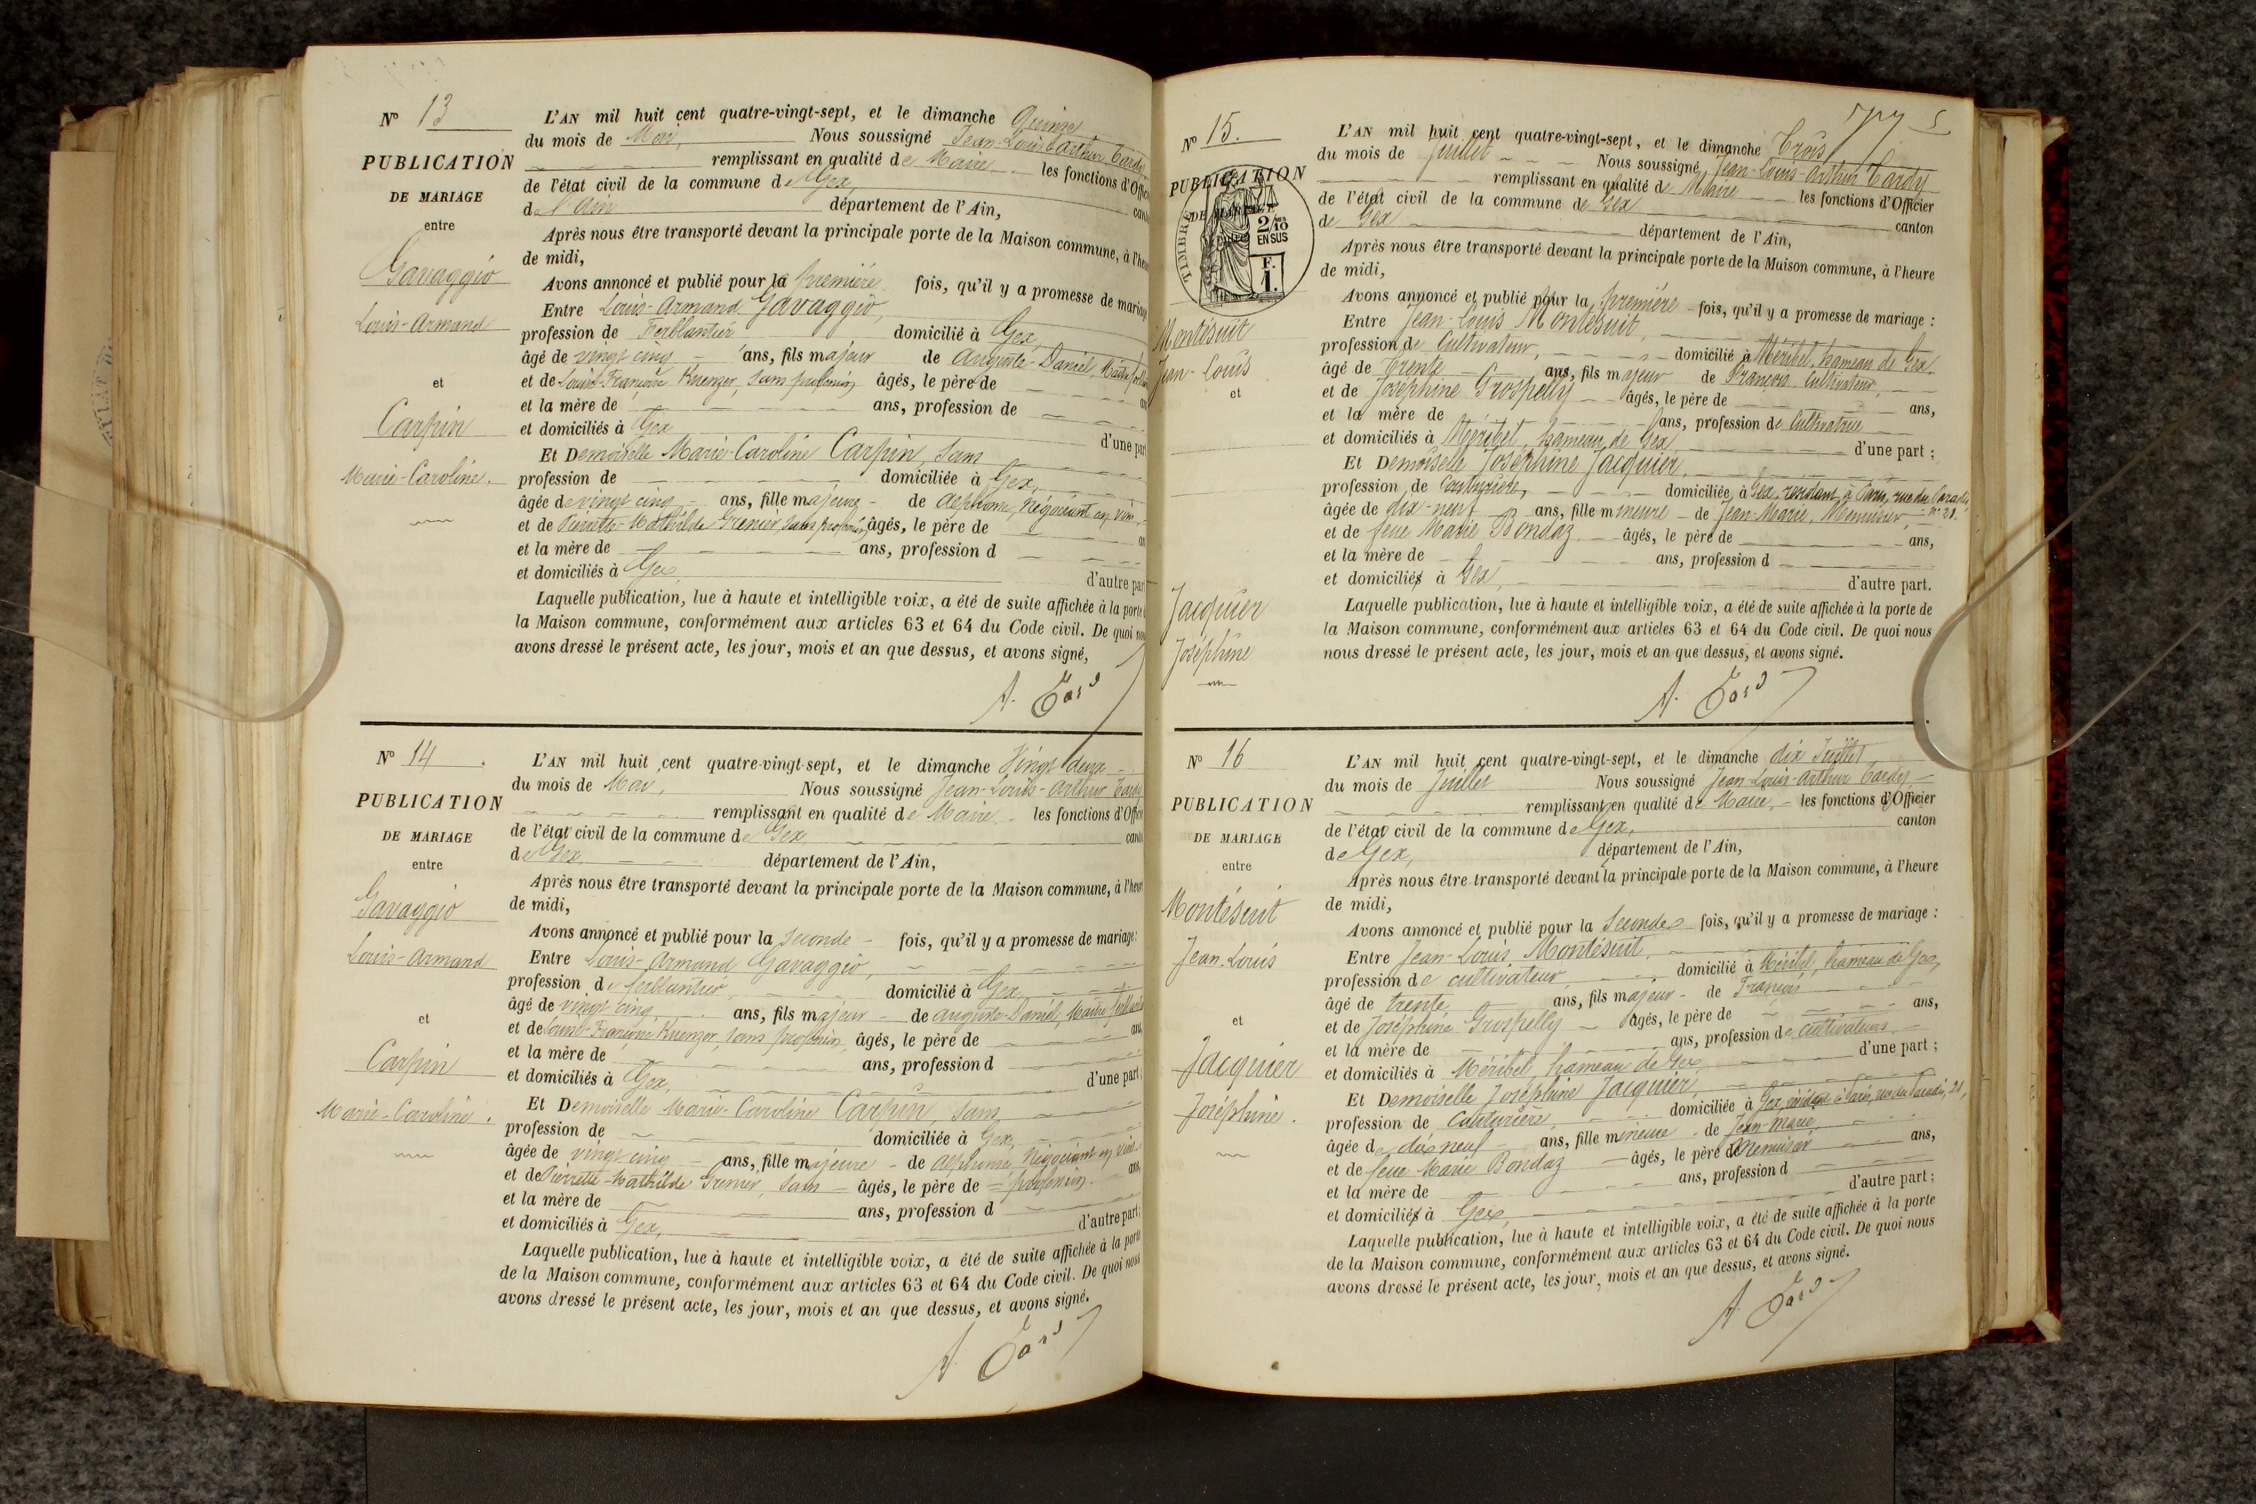 Nº 13
PUBLICATION
DE MARIAGE
entre
Gavaggio
Louis-Armand
et
Carpin
Marie-Caroline.
L'AN mil huit cent quatre-vingt-sept, et le dimanche Quinze
du mois de Mai, Nous soussigné Jean-Louis-Arthur Tardy
remplissant en qualité de Maire les fonctions d'Offici
de l'état civil de la commune de Gex, cant
de l'Ain département de l'Ain,
Après nous être transporté devant la principale porte de la Maison commune, à l'heu
de midi,
Avons annoncé et publié pour la première fois, qu'il y a promesse de mariage
Entre Louis-Armand Gavaggio,
profession de Ferblantier domicilié à Gex,
âgé de vingt cinq ans, fils majeur de Auguste-Daniel, Maître
et de Louise-Françoise Kuenzer, sans profession, âgés, le père de
et la mère de ans, profession de
et domiciliés à Gex d'une par
Et Demoiselle Marie-Caroline Carpin, sans
profession de domiciliée à Gex,
âgée de vingt cinq ans, fille majeure de Alphonse, Négociant en vin,
et de Pierrette-Mathilde Grenier, sans profession, âgés, le père de
et la mère de ans, profession d
et domiciliés à Gex, d'autre par
Laquelle publication, lue à haute et intelligible voix, a été de suite affichée à la porte
la Maison commune, conformément aux articles 63 et 64 du Code civil. De quoi nou
avons dressé le présent acte, les jour, mois et an que dessus, et avons signé,
A. Tardy
Nº 14.
PUBLICATION
DE MARIAGE
entre
Gavaggio
Louis-Armand
et
Carpin
Marie-Caroline.
L'AN mil huit cent quatre-vingt-sept, et le dimanche Vingt deux
du mois de Mai, Nous soussigné Jean-Louis-Arthur Tardy
remplissant en qualité de Maire les fonctions d'Offici
de l'état civil de la commune de Gex cant
de Gex département de l'Ain,
Après nous être transporté devant la principale porte de la Maison commune, à l'heur
de midi,
Avons annoncé et publié pour la seconde fois, qu'il y a promesse de mariage:
Entre Louis-Armand Gavaggio,
profession de ferblantier, domicilié à Gex,
âgé de vingt cinq, ans, fils majeur de Auguste-Daniel, Maître
et de Louise-Françoise Kuenzer, sans profession, âgés, le père de ans,
et la mère de ans, profession d
et domiciliés à Gex, d'une part;
Et Demoiselle Marie-Caroline Carpin, sans
profession de domiciliée à Gex,
âgée de vingt cinq ans, fille majeure de Alphonse, Négociant en vin.
et de Pierrette-Mathilde Grenier, sans âgés, le père de profession. ans,
et la mère de ans, profession d
et domiciliés à Gex, d'autre part;
Laquelle publication, lue à haute et intelligible voix, a été de suite affichée à la porte
de la Maison commune, conformément aux articles 63 et 64 du Code civil. De quoi nous
avons dressé le présent acte, les jour, mois et an que dessus, et avons signé.
A. Tardy
Nº 15.
PUBLICATION
DE MARIAGE
TIMBRE
2/10
EN SUS
F.
1.
Montésuit
Jean-Louis
et
Jacquier
Joséphine
L'AN mil huit cent quatre-vingt-sept, et le dimanche Trois
du mois de Juillet Nous soussigné, Jean-Louis-Arthur Tardy
remplissant en qualité de Maire les fonctions d'Officier
de l'état civil de la commune de Gex canton
de Gex département de l'Ain,
Après nous être transporté devant la principale porte de la Maison commune, à l'heure
de midi,
Avons annoncé et publié pour la première fois, qu'il y a promesse de mariage :
Entre Jean-Louis Montésuit,
profession de Cultivateur, domicilié à Méribel, hameau de Gex,
âgé de Trente ans, fils majeur de François Cultivateur,
et de Joséphine Grospelly âgés, le père de ans,
et la mère de ans, profession de Cultivatrice
et domiciliés à Méribel, hameau de Gex d'une part ;
Et Demoiselle Joséphine Jacquier,
profession de Couturière, domiciliée à Gex, résidant à Paris, rue du Paradis,
âgée de dix-neuf ans, fille mineure de Jean-Marie, Menuisier, nº 21.
et de feue Marie Bondaz âgés, le père de ans,
et la mère de ans, profession d
et domiciliés à Gex, d'autre part.
Laquelle publication, lue à haute et intelligible voix, a été de suite affichée à la porte de
la Maison commune, conformément aux articles 63 et 64 du Code civil. De quoi nous
nous dressé le présent acte, les jour, mois et an que dessus, et avons signé.
A. Tardy
Nº 16
PUBLICATION
DE MARIAGE
entre
Montésuit
Jean-Louis
et
Jacquier
Joséphine.
L'AN mil huit cent quatre-vingt-sept, et le dimanche dix Juillet
du mois de Juillet Nous soussigné Jean-Louis-Arthur Tardy,
remplissant en qualité de Maire, les fonctions d'Officier
de l'état civil de la commune de Gex, canton
de Gex, département de l'Ain,
Après nous être transporté devant la principale porte de la Maison commune, à l'heure
de midi,
Avons annoncé et publié pour la Seconde fois, qu'il y a promesse de mariage :
Entre Jean-Louis Montésuit,
profession de cultivateur, domicilié à Méribel, hameau de Gex,
âgé de trente ans, fils majeur de François
et de Joséphine Grospelly âgés, le père de ans,
et la mère de ans, profession de cultivateurs,
et domiciliés à Méribel, hameau de Gex, d'une part ;
Et Demoiselle Joséphine Jacquier,
profession de Couturière, domiciliée à Gex, résidant à Paris, rue du Paradis, 21,
âgée de dix neuf ans, fille mineure de Jean-Marie,
et de feue Marie Bondaz âgés, le père de Menuisier ans,
et la mère de ans, profession d
et domiciliés à Gex, d'autre part ;
Laquelle publication, lue à haute et intelligible voix, a été de suite affichée à la porte
de la Maison commune, conformément aux articles 63 et 64 du Code civil. De quoi nous
avons dressé le présent acte, les jour, mois et an que dessus, et avons signé.
A. Tardy